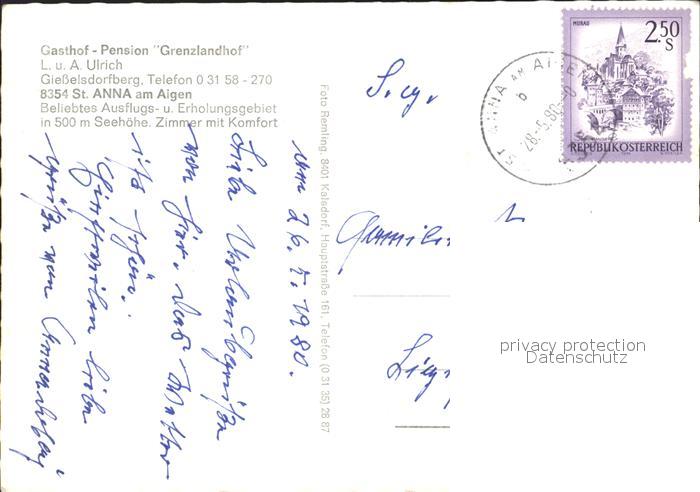 Gasthof - Pension "Grenzlandhof"
L. u. A. Ulrich
Gießelsdorfberg, Telefon 0 31 58 - 270
8354 St. ANNA am Aigen
Beliebtes Ausflugs- u. Erholungsgebiet
in 500 m Seehöhe. Zimmer mit Komfort
am 26.5.1980.
Liebe Urlaubsgrüße
von hier. Das Wetter
ist schön.
liebe
Grüße von
Foto Remling, 8401 Kalsdorf, Hauptstraße 161, Telefon (0 31 35) 28 87
Familie
MURAU
2.50
S
REPUBLIK ÖSTERREICH
ST. ANNA AM AI
b
28.-5.80
privacy protection
Datenschutz